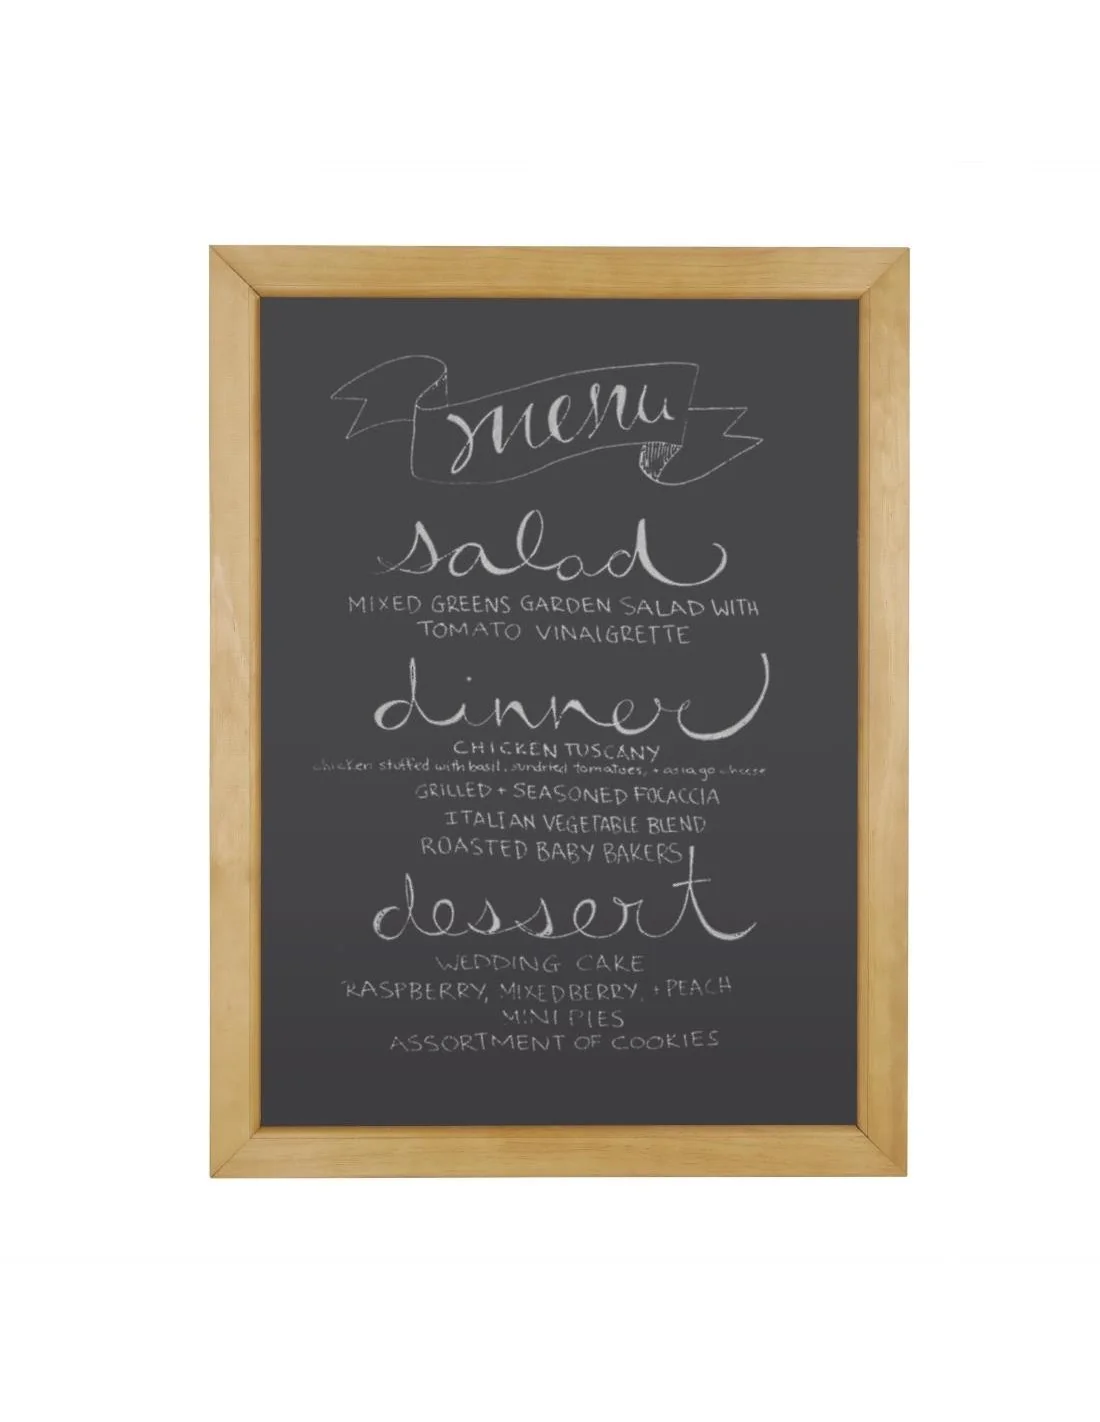 menu
salad
MIXED GREENS GARDEN SALAD WITH
TOMATO VINAIGRETTE
dinner
CHICKEN TUSCANY
chicken stuffed with basil, sundried tomatoes, + asiago cheese
GRILLED + SEASONED FOCACCIA
ITALIAN VEGETABLE BLEND
ROASTED BABY BAKERS
dessert
WEDDING CAKE
RASPBERRY, MIXED BERRY, + PEACH
MINI PIES
ASSORTMENT OF COOKIES